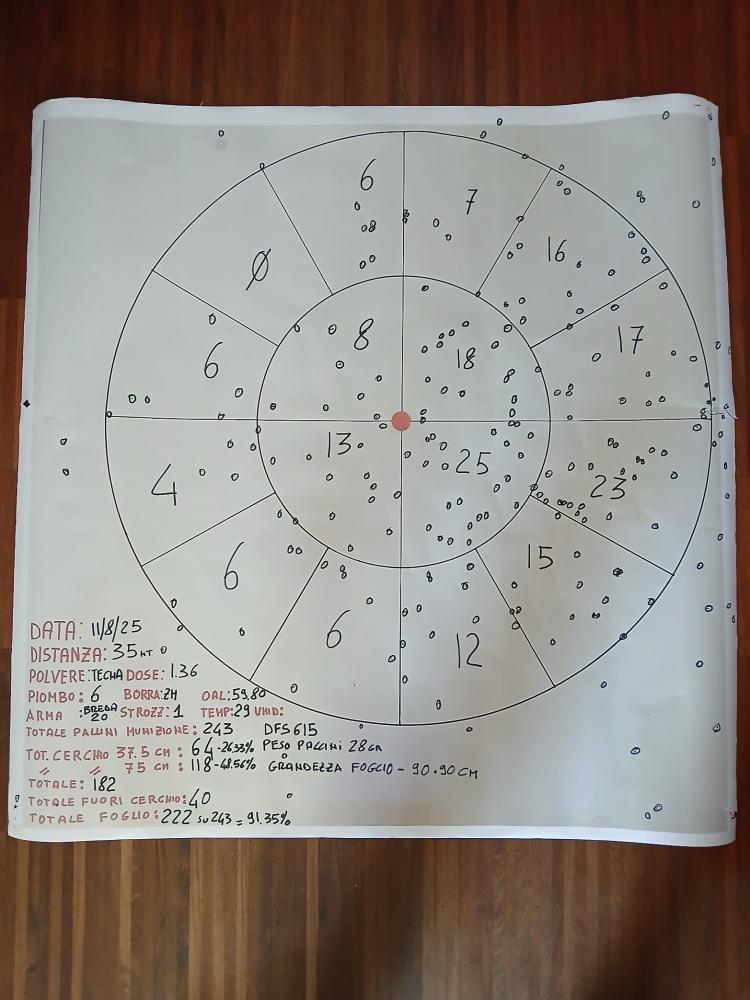 6
7
Ø
16
6
8
18
17
4
13
25
23
6
15
6
12
DATA: 11/8/25
DISTANZA: 35 MT
POLVERE: TECNA DOSE: 1.36
PIOMBO: 6 BORRA: 2H OAL: 59.80
ARMA : BREDA 20 STROZZ: 1 TEMP: 29 UMID:
TOTALE PALLINI MUNIZIONE: 243 DFS 615
TOT. CERCHIO 37.5 CM: 64 - 26.33% PESO PALLINI 28 GR
" " 75 CM: 118 - 48.56% GRANDEZZA FOGLIO - 90.90 CM
TOTALE: 182
TOTALE FUORI CERCHIO: 40
TOTALE FOGLIO: 222 SU 243 = 91.35%